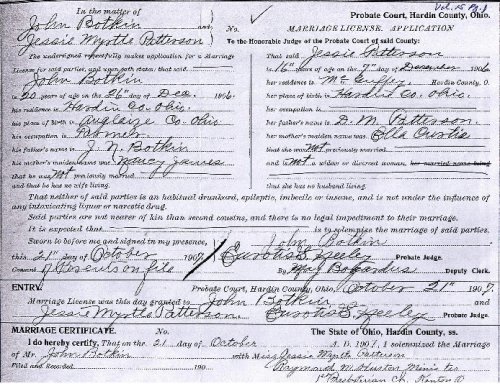 In the matter of
John Botkin
and
Jessie Myrtle Patterson
The undersigned respectfully makes application for a Marriage
License for said parties, and upon oath states, that said
John Botkin
is 20 years of age on the 26th day of Dec. 1906
his residence is Hardin Co. Ohio
his place of birth is Auglaize Co. Ohio
his occupation is Farmer
his father's name is J. N. Botkin
his mother's maiden name was Nancy James
that he was not previously married
and that he has no wife living
Vol. 15 Pg. 1
Probate Court, Hardin County, Ohio,
No. MARRIAGE LICENSE. APPLICATION
To the Honorable Judge of the Probate Court of said County:
That said Jessie Patterson
is 16 years of age on the 7th day of December 1906
her residence is McGuffey Hardin County, O.
her place of birth is Hardin Co. Ohio
her occupation is
her father's name is D. M. Patterson
her mother's maiden name was Ella Curtis
that she was not previously married
and is not a widow or divorced woman, her married name being
that she has no husband living
That neither of said parties is an habitual drunkard, epileptic, imbecile or insane, and is not under the influence of
any intoxicating liquor or narcotic drug.
Said parties are not nearer of kin than second cousins, and there is no legal impediment to their marriage.
It is expected that is to solemnize the marriage of said parties.
John Botkin
Sworn to before me and signed in my presence,
this 21st day of October 1907
Probate Judge
Consent of on file
By Deputy Clerk.
ENTRY. Probate Court, Hardin County, Ohio, October 21st 1907.
Marriage License was this day granted to John Botkin and
Jessie Myrtle Patterson.
Probate Judge.
MARRIAGE CERTIFICATE. No. The State of Ohio, Hardin County, ss.
I do hereby certify, That on the 21 day of October A. D. 1907, I solemnized the Marriage
of Mr. John Botkin with Miss Jessie Myrtle Patterson
Filed and Recorded 190
Minister
1st Presbyterian Ch. Kenton O